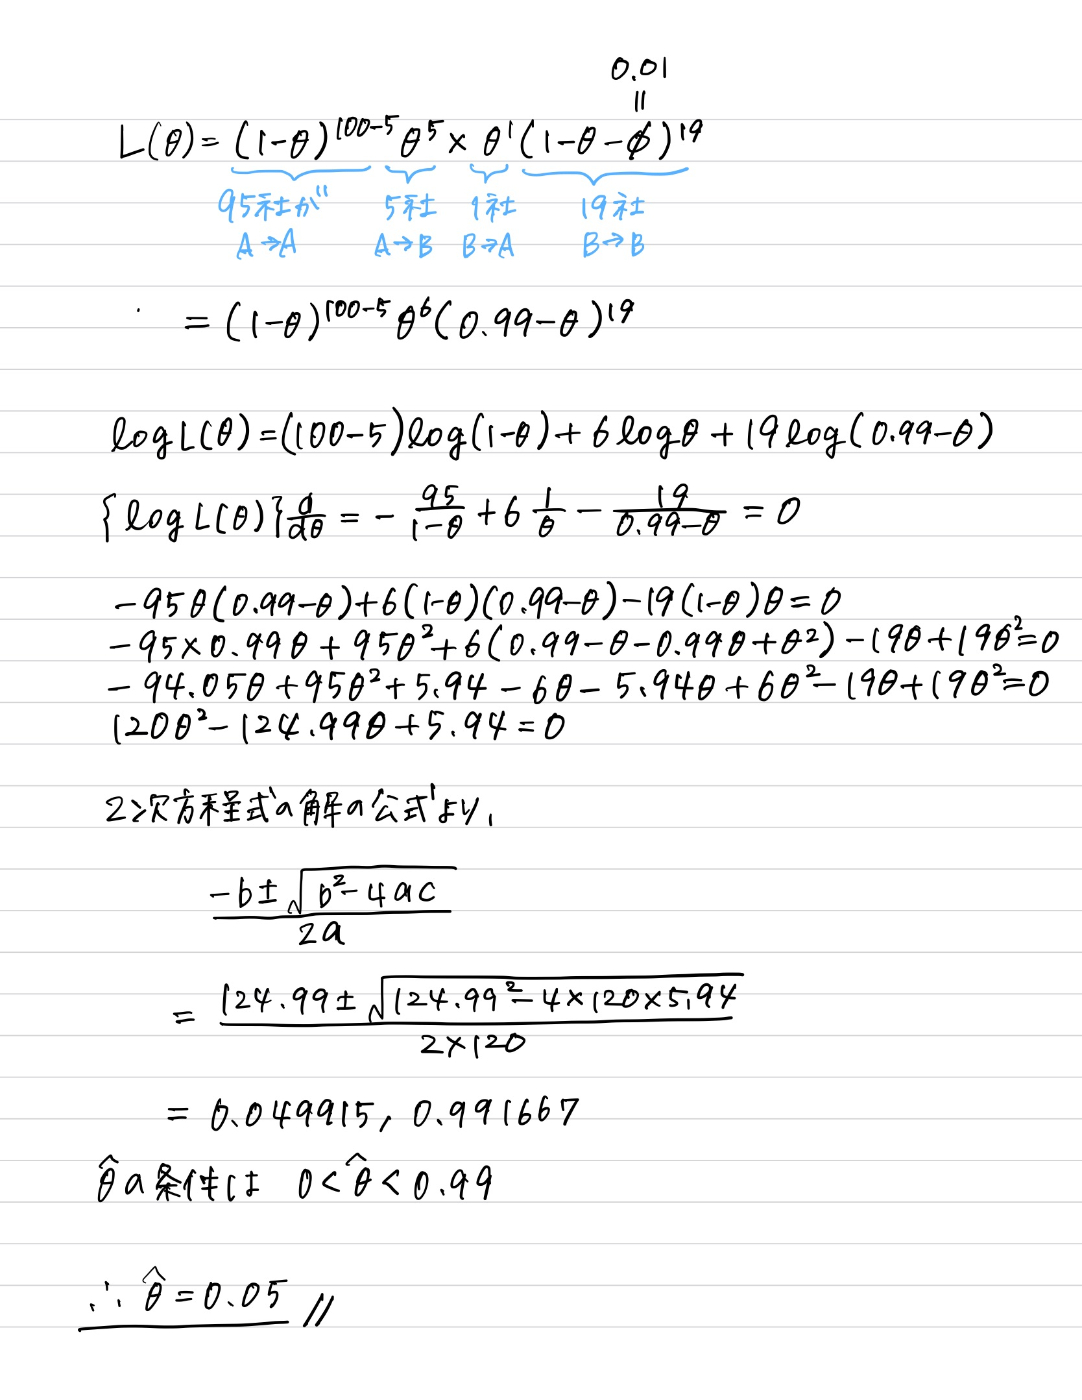 0.01
||
L(θ) = (1-θ)^{100-5} θ^5 × θ^1 (1-θ-φ)^{19}
95社が 5社 1社 19社
A→A A→B B→A B→B
= (1-θ)^{100-5} θ^6 (0.99-θ)^{19}
log L(θ) = (100-5)log(1-θ) + 6logθ + 19log(0.99-θ)
{log L(θ)} d/dθ = - 95/(1-θ) + 6 1/θ - 19/(0.99-θ) = 0
-95θ(0.99-θ)+6(1-θ)(0.99-θ)-19(1-θ)θ=0
-95×0.99θ+95θ²+6(0.99-θ-0.99θ+θ²)-19θ+19θ²=0
-94.05θ+95θ²+5.94-6θ-5.94θ+6θ²-19θ+19θ²=0
120θ²-124.99θ+5.94=0
2次方程式の解の公式より,
(-b±√(b²-4ac))/2a
= (124.99±√(124.99²-4×120×5.94))/(2×120)
= 0.049915, 0.991667
θ̂の条件は 0<θ̂<0.99
∴ θ̂=0.05 //